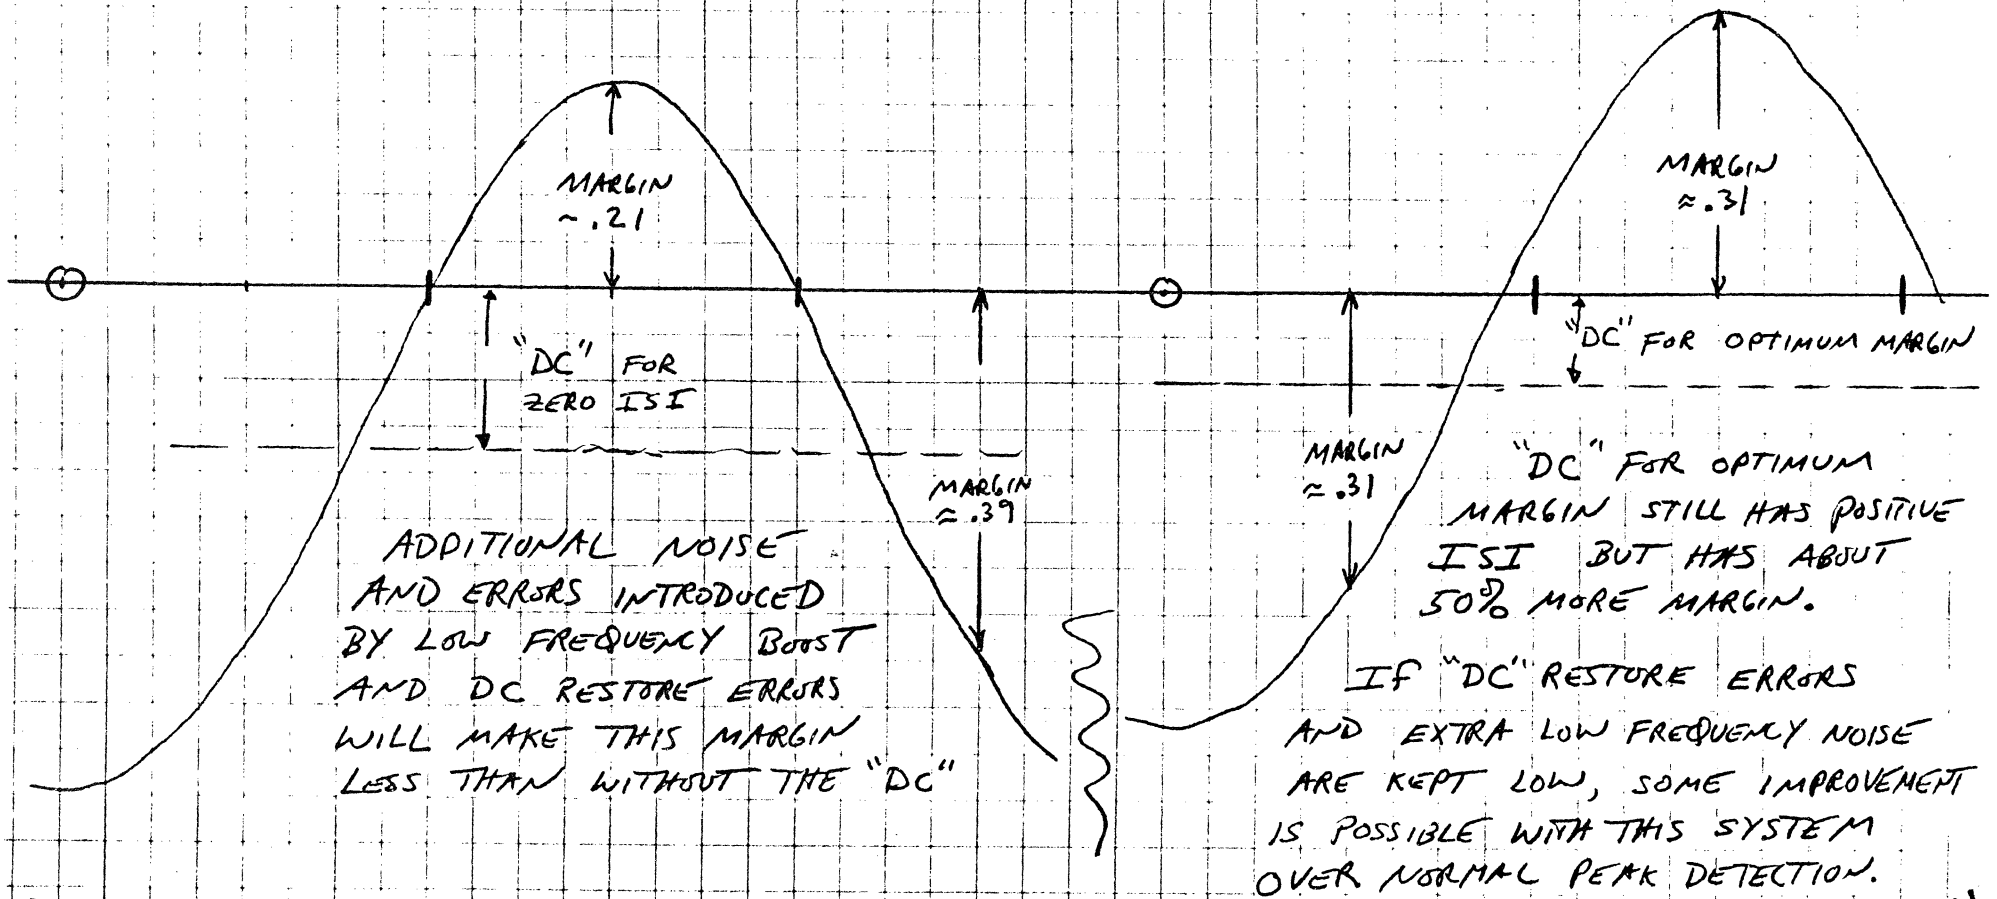 MARGIN
~ .21
"DC" FOR
ZERO ISI
MARGIN
≈ .39
ADDITIONAL NOISE
AND ERRORS INTRODUCED
BY LOW FREQUENCY BOOST
AND DC RESTORE ERRORS
WILL MAKE THIS MARGIN
LESS THAN WITHOUT THE "DC"
MARGIN
≈ .31
"DC" FOR OPTIMUM MARGIN
MARGIN
≈ .31
"DC" FOR OPTIMUM
MARGIN STILL HAS POSITIVE
ISI BUT HAS ABOUT
50% MORE MARGIN.
IF "DC" RESTORE ERRORS
AND EXTRA LOW FREQUENCY NOISE
ARE KEPT LOW, SOME IMPROVEMENT
IS POSSIBLE WITH THIS SYSTEM
OVER NORMAL PEAK DETECTION.